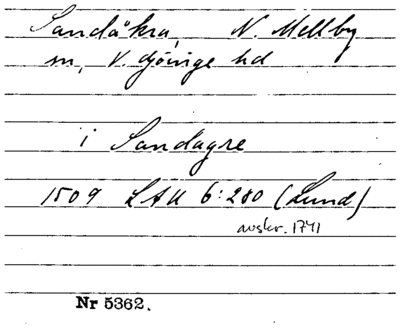 Sandåkra, N. Mellby
sn, V. Göinge hd
i Sandagre
1509 LÄU 6:280 (Lund)
avskr. 1741
Nr 5362.